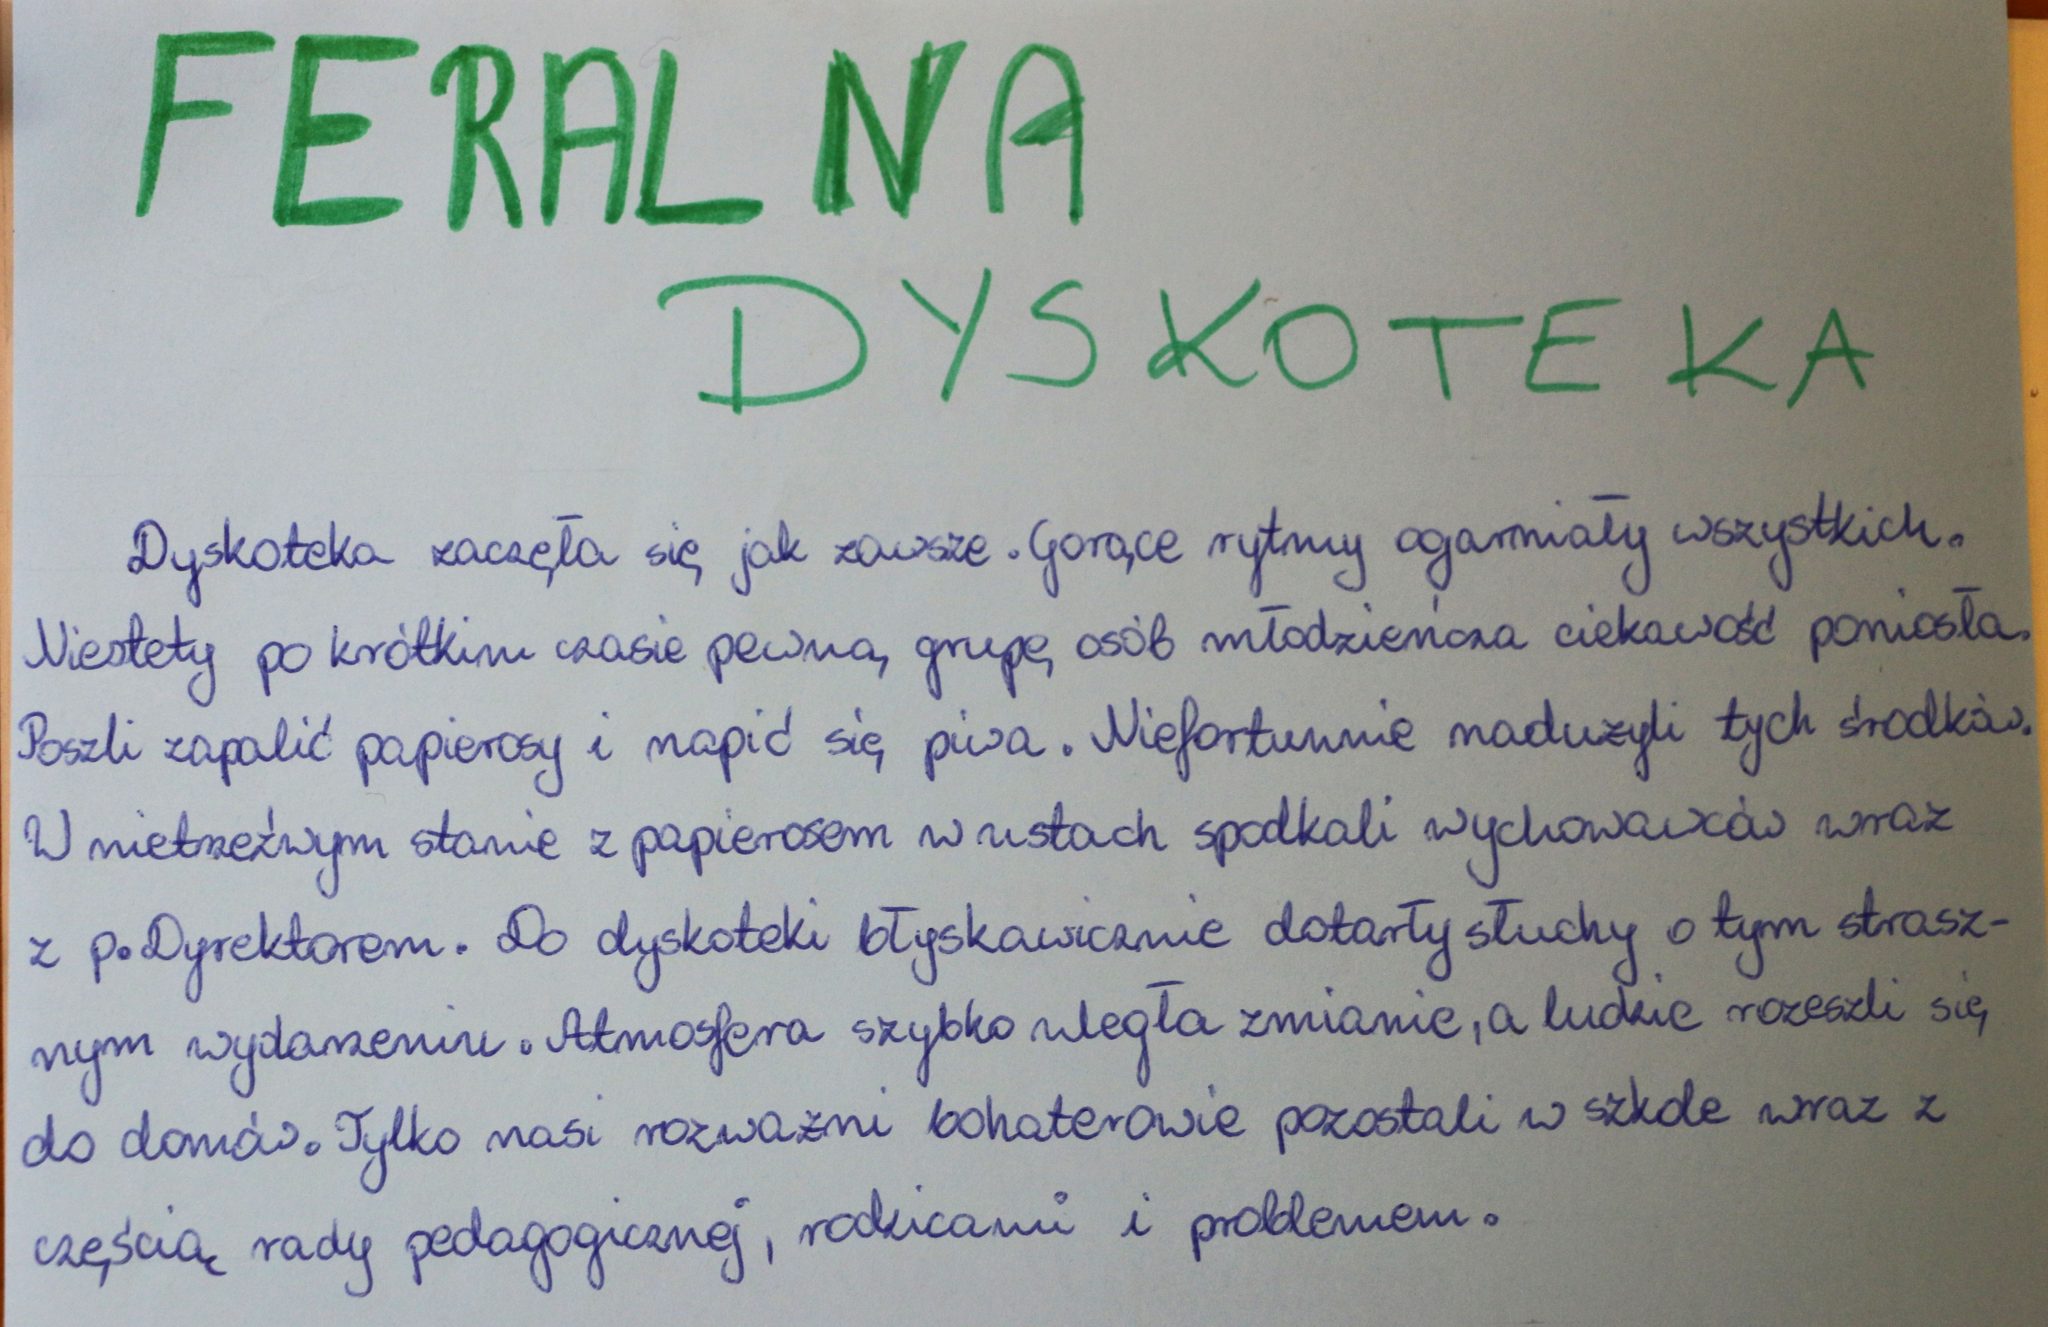 FERALNA
DYSKOTEKA
Dyskoteka zaczęła się jak zawsze. Gorące rytmy ogarniały wszystkich.
Niestety po krótkim czasie pewną grupę osób młodzieńcza ciekawość poniosła.
Poszli zapalić papierosy i napić się piwa. Niefortunnie nadużyli tych środków.
W nietrzeźwym stanie z papierosem w ustach spodkali wychowawców wraz
z p. Dyrektorem. Do dyskoteki błyskawicznie dotarły słuchy o tym strasz-
nym wydarzeniu. Atmosfera szybko uległa zmianie, a ludzie rozeszli się
do domów. Tylko nasi rozważni bohaterowie pozostali w szkole wraz z
częścią rady pedagogicznej, rodzicami i problemem.